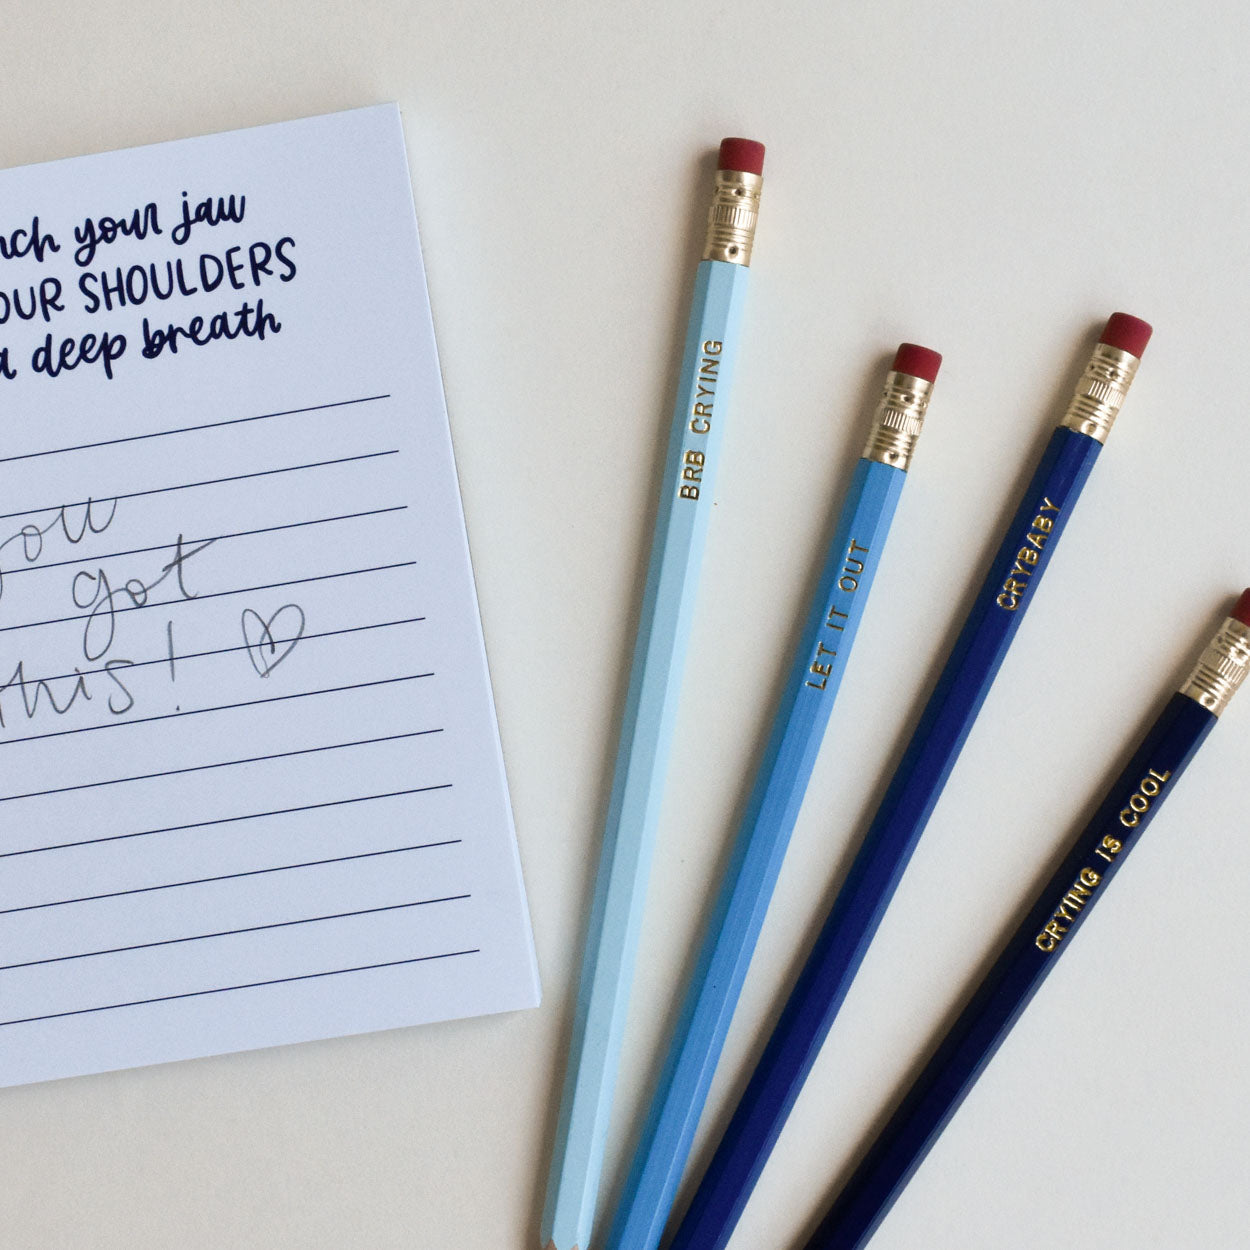 your jaw
SHOULDERS
deep breath
you
got
this!
BRB CRYING
LET IT OUT
CRYBABY
CRYING IS COOL